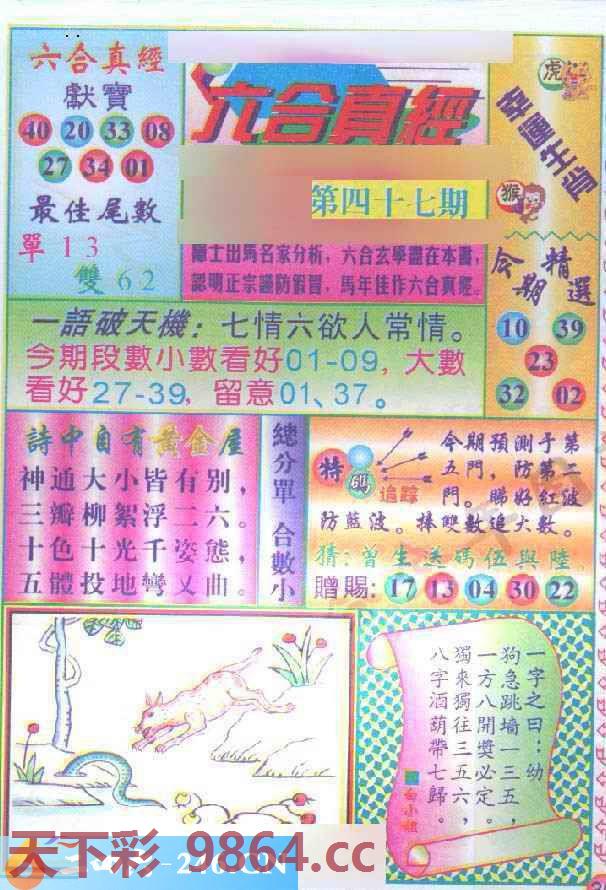 六合真經
獻寶
40 20 33 08
27 34 01
最佳尾數
單 1 3
雙 6 2
六合真經
第四十七期
隱士出馬名家分析，六合玄學盡在本書，
認明正宗謹防假冒，馬年佳作六合真經。
虎
幸運生肖
猴
今期精選
10 39
23
32 02
一語破天機：七情六欲人常情。
今期段數小數看好01-09，大數
看好27-39，留意01、37。
詩中自有黃金屋
神通大小皆有別，
三瓣柳絮浮二六。
十色十光千姿態，
五體投地彎又曲。
總分單 合數小
特碼追踪
今期預測于第
五門，防第二
門。睇好紅波
防藍波。捧雙數追大數。
猜：曾生送碼伍與陸
贈賜：17 13 04 30 22
一字之曰：幼
狗急跳墙一三五，
一方八開獎必定。
獨來獨往三五六，
八字酒葫帶七歸。
白小姐
天下彩 9864.cc